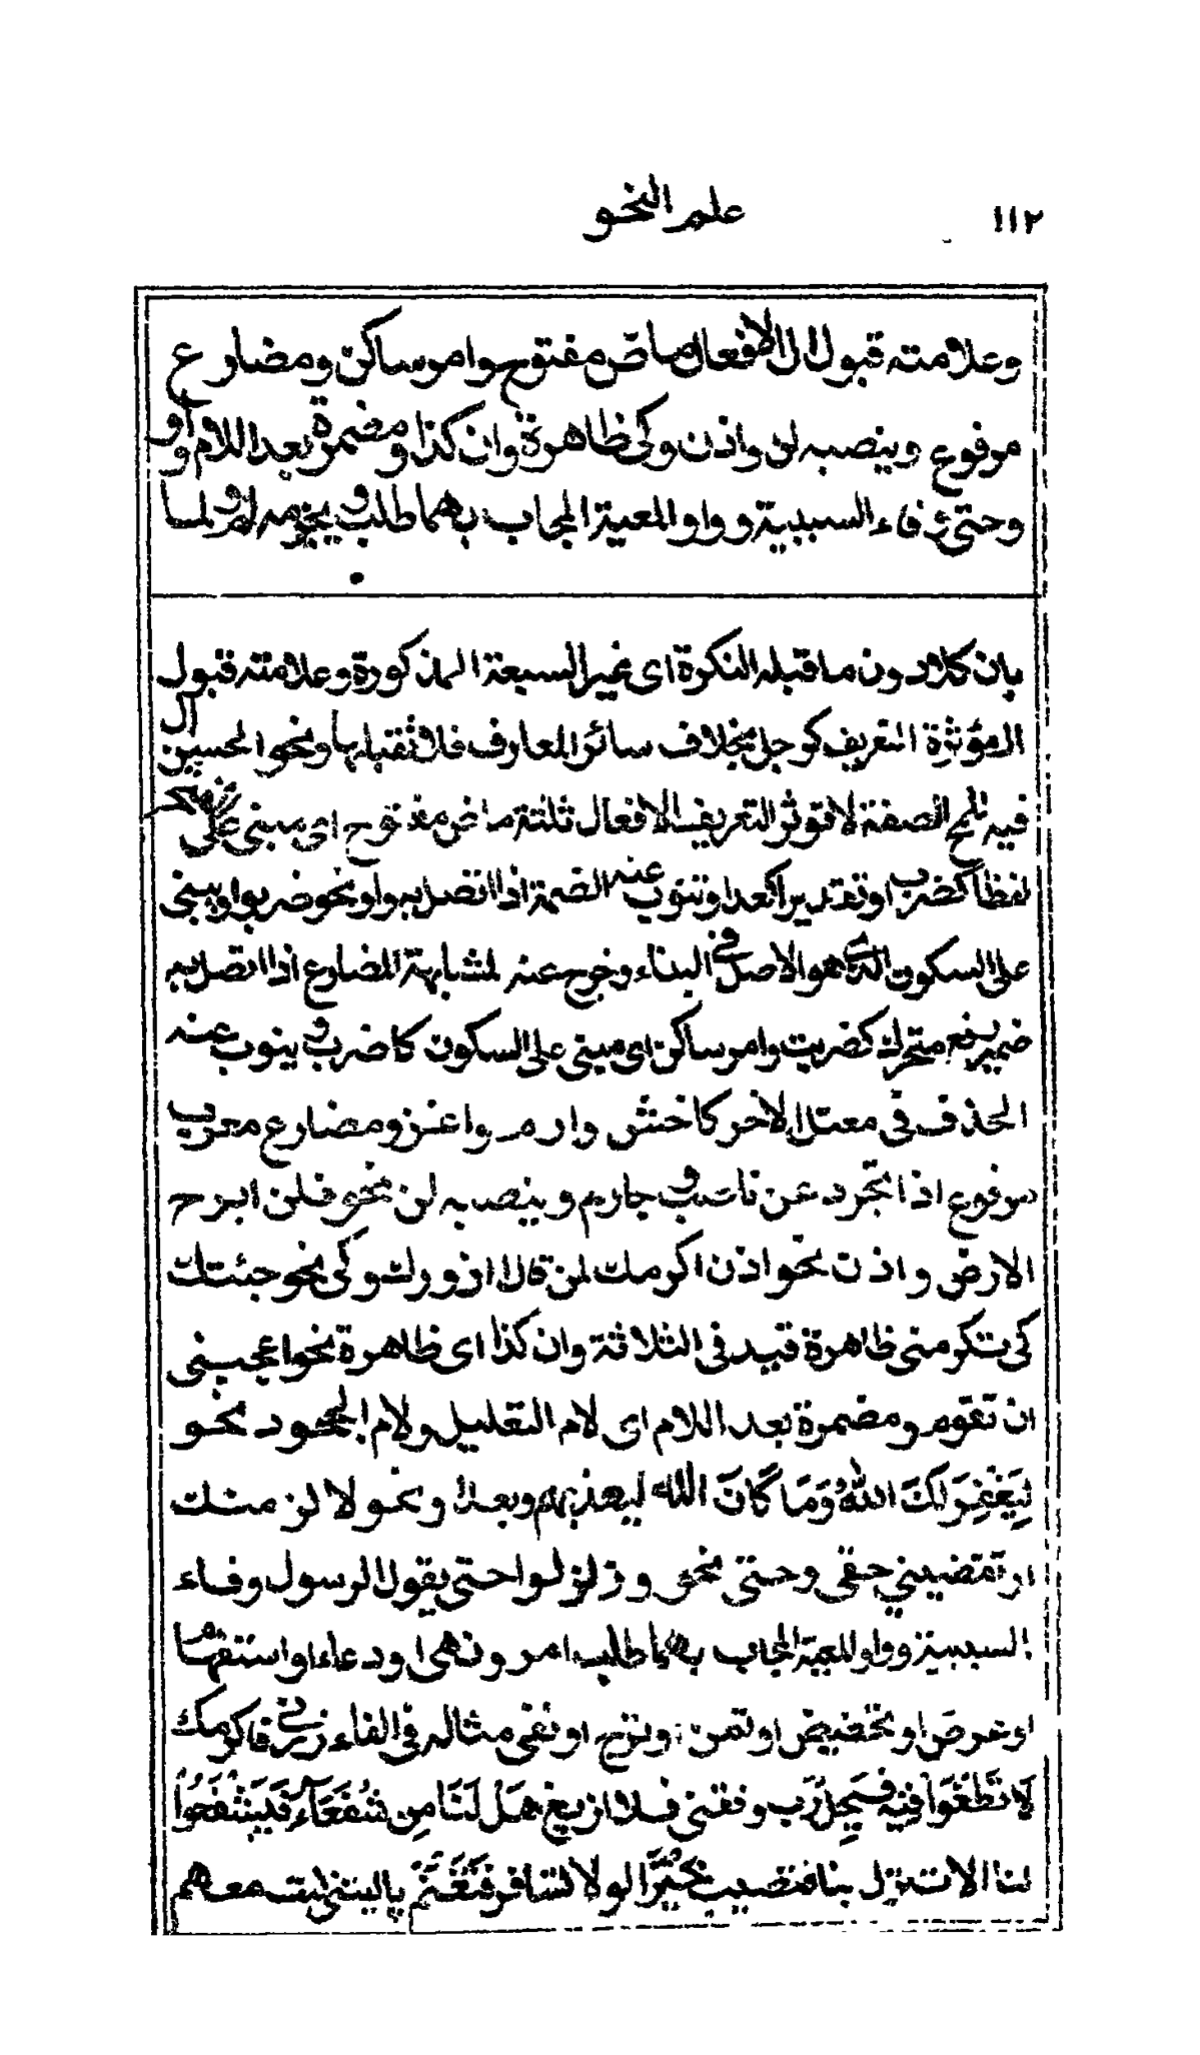 ١١٢ علم النحو
وعلامته قبول ال الافعال ماض مفتوح وامر ساكن ومضارع
مرفوع وينصبه لن واذن وكى ظاهرة وان كذا ومضمرة بعد اللام واو
وحتى وفاء السببية وواو المعية المجاب بهما طلب ويجزمه لم ولما
بان كلا دون ما قبله النكرة اى غير السبعة المذكورة وعلامته قبول ال
المؤثرة التعريف كرجل بخلاف سائر المعارف فلا تقبلها ونحو الحسين
فيه للمح الصفة لا تؤثر التعريف الافعال ثلثة ماض مفتوح اى مبنى على الفتح
لفظا كضرب او تقديرا كعدا وتنوب عنه الضمة اذا اتصل به واو نحو ضربوا ويبنى
على السكون الذى هو الاصل فى البناء وخرج عنه لمشابهة المضارع اذا اتصل به
ضمير رفع متحرك كضربت وامر ساكن اى مبنى على السكون كاضرب وينوب عنه
الحذف فى معتل الاخر كاخش وارم واغز ومضارع معرب
مرفوع اذا تجرد عن ناصب وجازم وينصبه لن نحو فلن ابرح
الارض واذن نحو اذن اكرمك لمن قال ازورك وكى نحو جئتك
كى تكرمنى ظاهرة قيد فى الثلاثة وان كذا اى ظاهرة نحو اعجبنى
ان تقوم ومضمرة بعد اللام اى لام التعليل ولام الجحود نحو
لِيَغْفِرَ لَكَ اللهُ وَمَا كَانَ الله ليعذبهم وبعد او نحو لالزمنك
او تقضينى حقى وحتى نحو وزلزلوا حتى يقول الرسول وفاء
السببية وواو المعية المجاب بهما طلب امر ونهى او دعاء او استفهام
او عرض او تحضيض او تمن وترج او نفى مثاله فى الفاء زرنى فاكرمك
لَا تَطْغَوْا فِيهِ فَيَحِلَّ رَب وفقنى فلا ازيغ هَلْ لَنَا مِن شُفَعَاءَ فَيَشْفَعُوا
لنا الا تنزل بنا فتصيب خَيْرًا لولا تسافر فَتَغْنَمَ ياليتنى كنت معهم